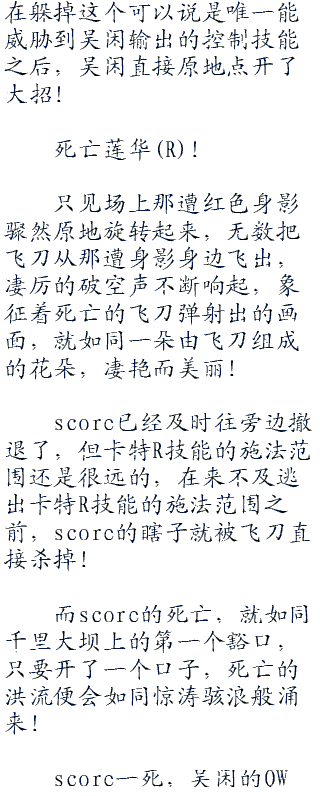 在躲掉这个可以说是唯一能
威胁到吴闲输出的控制技能
之后，吴闲直接原地点开了
大招！
死亡莲华(R)！
只见场上那遭红色身影
骤然原地旋转起来，无数把
飞刀从那遭身影身边飞出，
凄厉的破空声不断响起，象
征着死亡的飞刀弹射出的画
面，就如同一朵由飞刀组成
的花朵，凄艳而美丽！
score已经及时往旁边撤
退了，但卡特R技能的施法范
围还是很远的，在来不及逃
出卡特R技能的施法范围之
前，score的瞎子就被飞刀直
接杀掉！
而score的死亡，就如同
千里大坝上的第一个豁口，
只要开了一个口子，死亡的
洪流便会如同惊涛骇浪般涌
来！
score一死，吴闲的QW